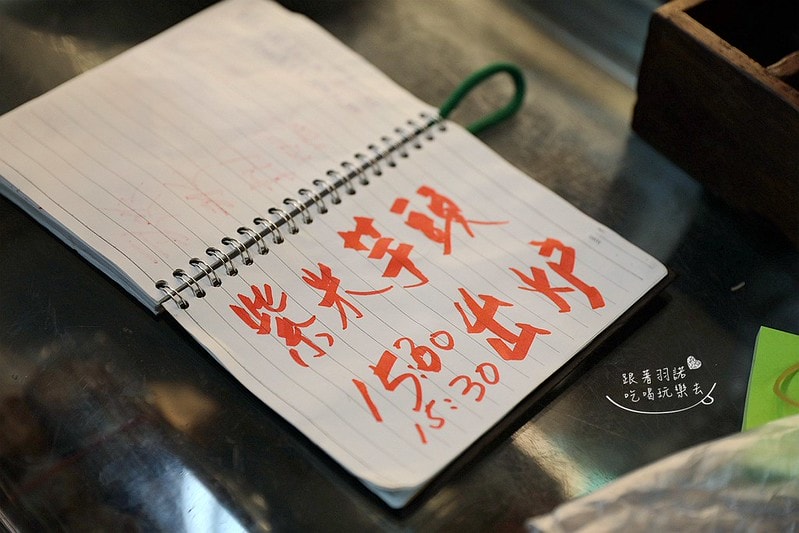 紫米芋頭
15:30出炉
15:30
跟著羽諾
吃喝玩樂去